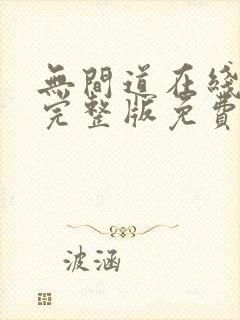 無間道在綫
完整版免費
波涵